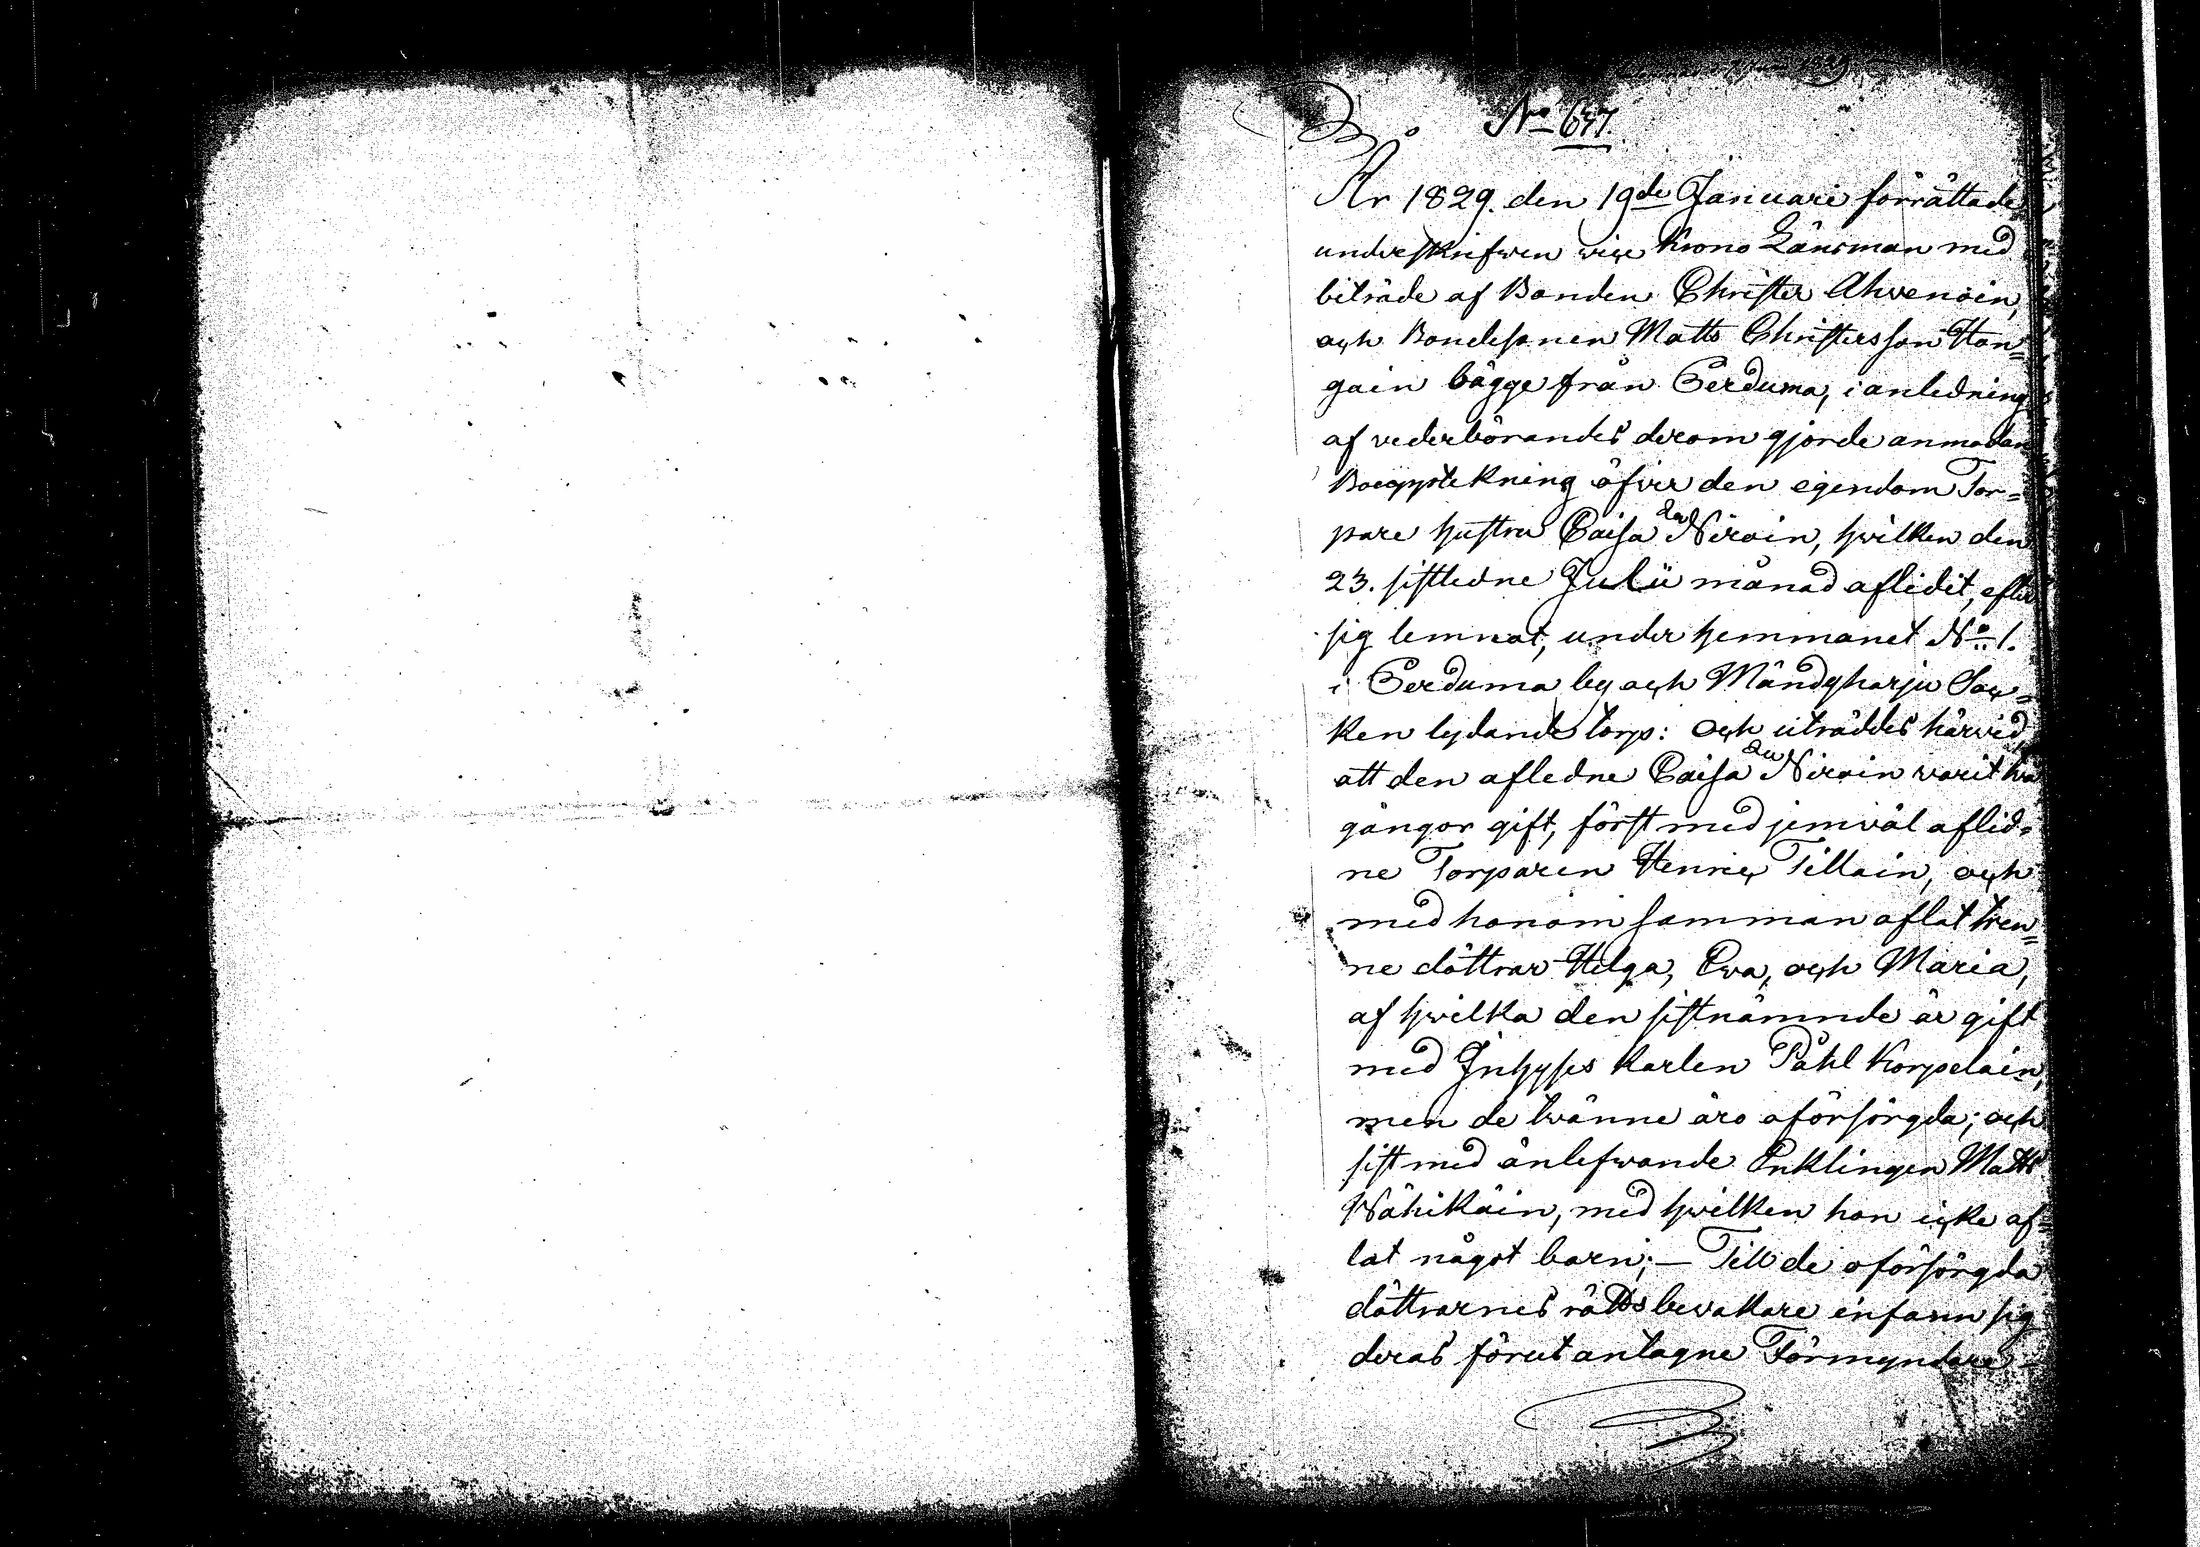 No 647.
År 1829. den 19de Januari förrättade
underskrifwen vice Krono Länsman med
biträde af Bonden Christer Ahvenain,
och Bondesonen Matts Christersson Han=
gain bägge från Perduma, i anledning
af vederbörandes derom gjorde anmodan
Bouppteckning öfver den egendom Tor=
pare hustru Caisa Niroin, hvilken den
23. sistledne Julii månad aflidit, efter
sig lemnat, under hemmanet No 1.
i Perduma by och Mändyharju Soc=
ken lydande torp: och utråddes härvid
att den afledne Caisa Niroin varit två
gångor gift, först med jemväl aflid=
ne Torparen Henric Tillain, och
med honom samman aflat tren=
ne döttrar Helga, Eva, och Maria,
af hvilka den sistnämnde är gift
med Inhyses karlen Påhl Korpelain,
men de tvänne äro oförsörgda; och
sist med änlefwande Enklingen Matts
Wähikäin, med hvilken hon icke af=
lat något barn; — Till de oförsörgda
döttrarnes rättsbevakare infann sig
deras förut antagne Förmyndare